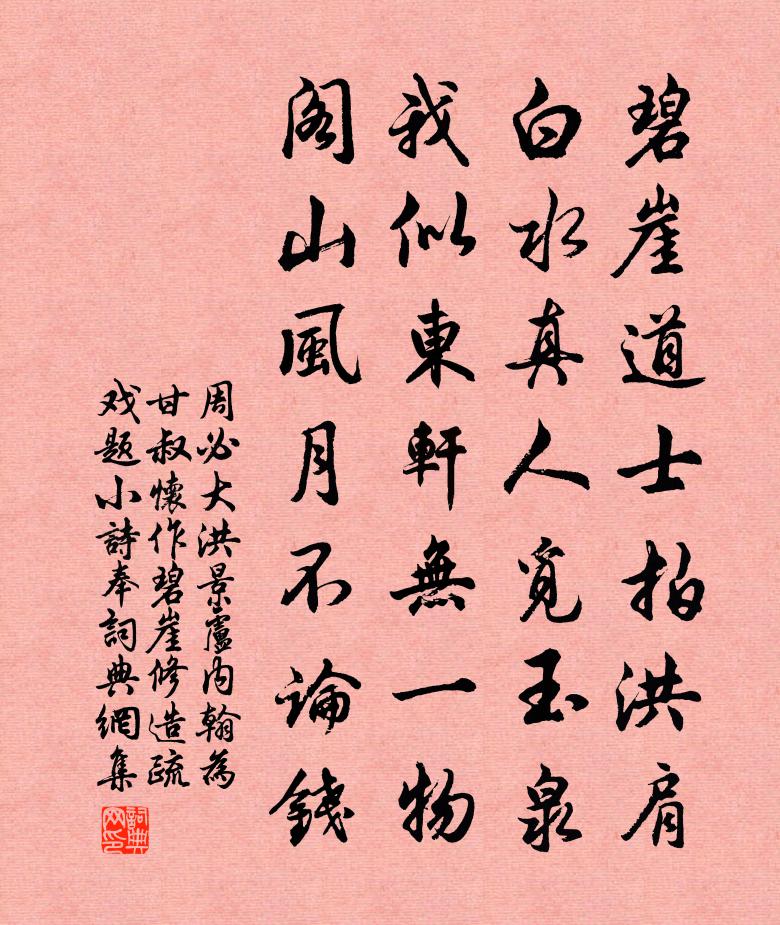 碧崖道士拍洪肩
白水真人覓玉泉
我似東軒無一物
閣山風月不論錢
周必大洪景盧内翰為
甘叔懷作碧崖修造疏
戏题小詩奉詞典網集
詞典网印